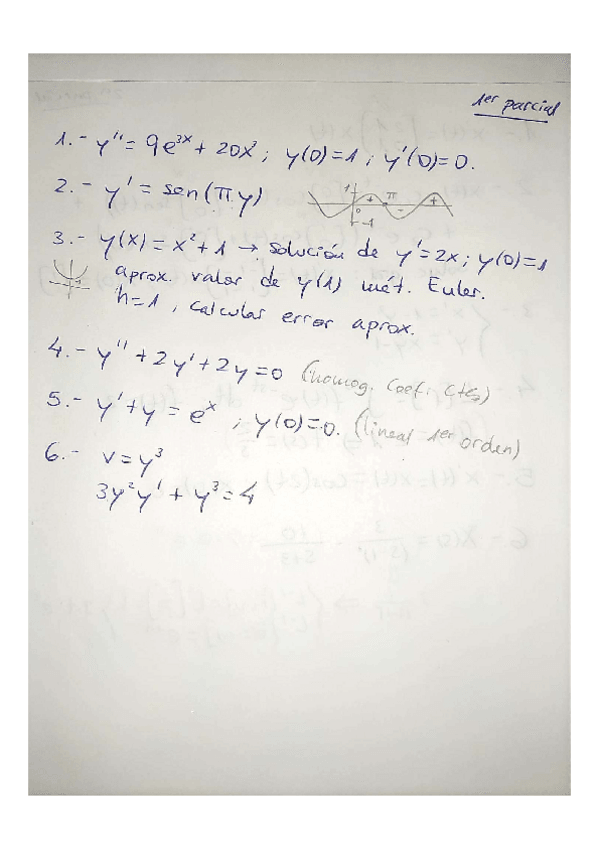 1er parcial
1.- y'' = 9e³ˣ + 20x³ ; y(0)=1 ; y'(0)=0.
2.- y' = sen(π y)
1 + π + 0 - -1
3.- y(x) = x² + 1 → solución de y'=2x ; y(0)=1
aprox. valor de y(1) mét. Euler.
h=1, calcular error aprox.
4.- y'' + 2y' + 2y = 0 (homog. coef. ctes)
5.- y' + y = eˣ ; y(0)=0. (lineal 1er orden)
6.- v = y³
3y²y' + y³ = 4